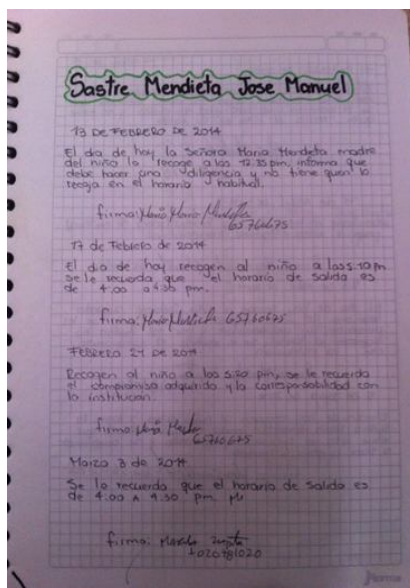 Sastre Mendieta Jose Manuel
13 DE FEBRERO DE 2014
El dia de hoy la Señora Maria Mendieta madre
del niño lo recoge a las 12.35 pm, informa que
debe hacer una diligencia y no tiene quien lo
recoja en el horario habitual.
firma: Maria
65760675
17 de Febrero de 2014
El dia de hoy recogen al niño a las 5:10 pm
se le recuerda que el horario de salida es
de 4:00 a 4:30 pm.
firma: Maria 65760675
FEBRERO 27 DE 2014
Recogen al niño a las 5:20 pm, se le recuerda
el compromiso adquirido y la corresponsabilidad con
la institucion.
firma: Maria
65760675
Marzo 3 de 2014
Se le recuerda que el horario de salida es
de 4:00 A 4:30 pm.
firma:
1020781020
Norma